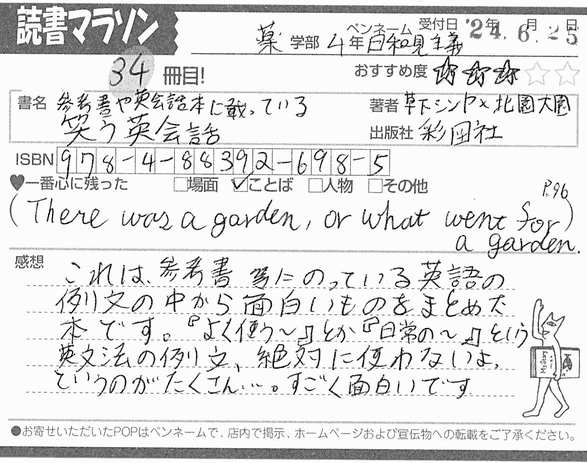 読書マラソン
ペンネーム 受付日 '24.6.25
年 月 日
薬 学部 4年 日和見主義
34 冊目!
おすすめ度 ☆☆☆☆☆
書名 参考書や英会話本に載っている
笑う英会話
著者 草下シンヤ×北園大園
出版社 彩図社
ISBN 978-4-88392-698-5
♥一番心に残った □場面 ☑ことば □人物 □その他
P.96
(There was a garden, or what went for
a garden.)
感想
これは、参考書等にのっている英語の
例文の中から面白いものをまとめた
本です。『よく使う~』とか『日常の~』という
英文法の例文、絶対に使わないよ、
というのがたくさん…。すごく面白いです
●お寄せいただいたPOPはペンネームで、店内で掲示、ホームページおよび宣伝物への転載をご了承ください。